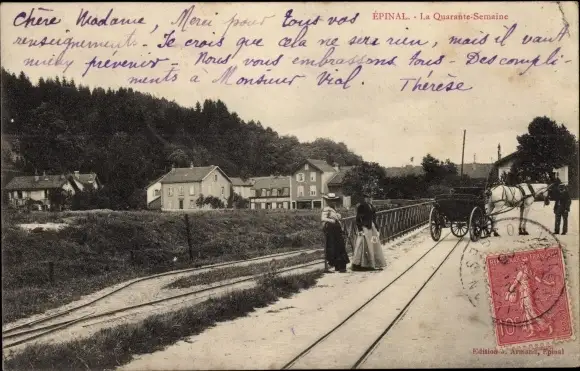 ÉPINAL. - La Quarante-Semaine
Chère Madame, Merci pour tous vos
renseignements. Je crois que cela ne sera rien, mais il vaut
mieux prévenir - Nous vous embrassons tous - Des compli-
ments à Monsieur Vial. Thérèse
Edition A. Armand, Epinal